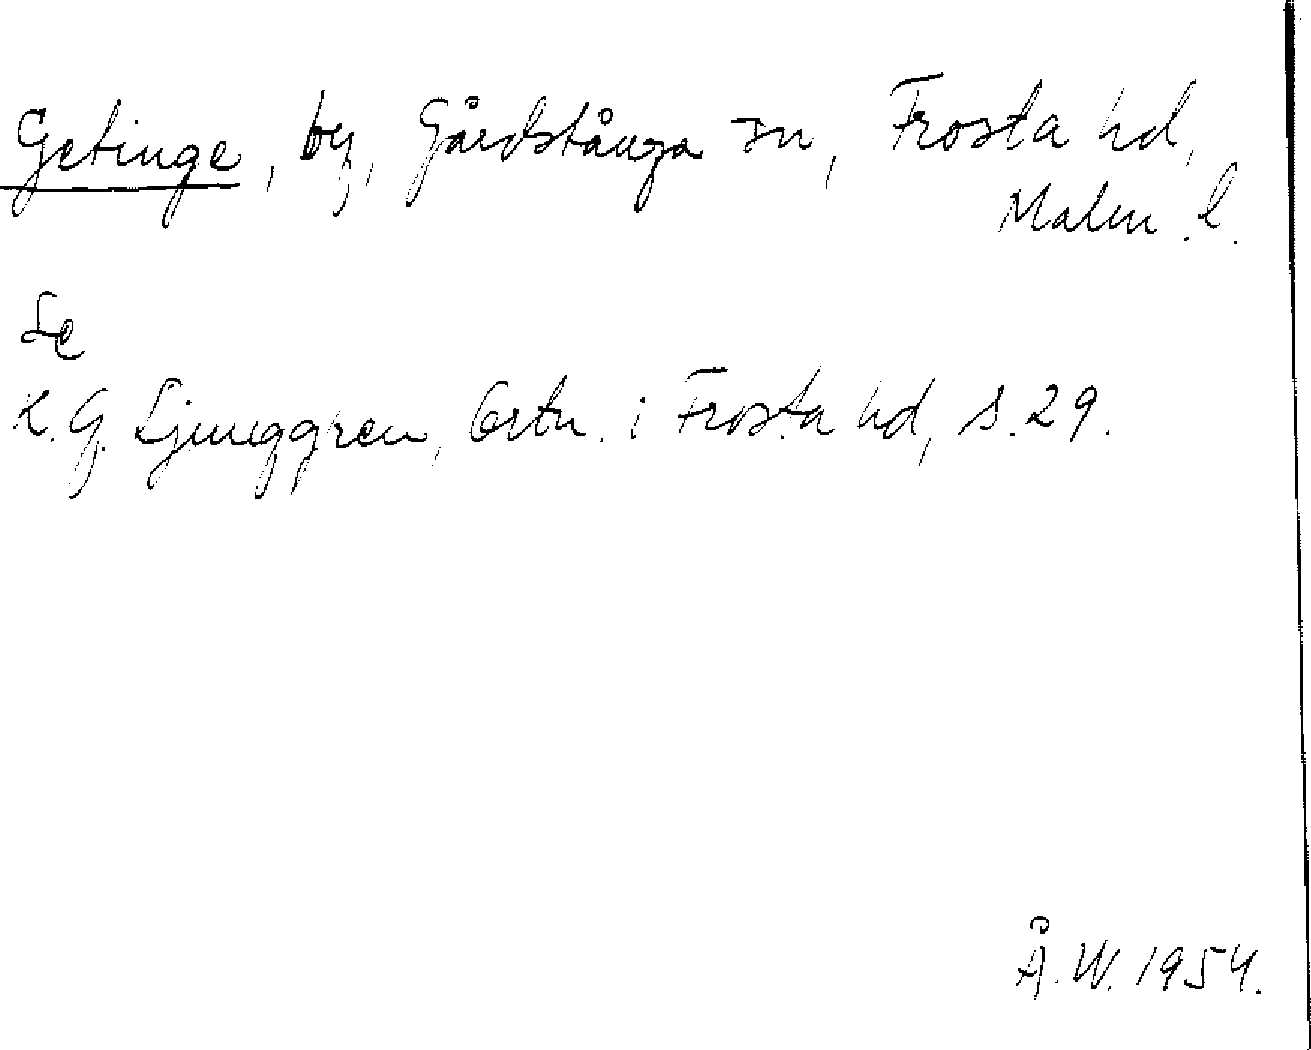 Getinge, by, Gårdstånga sn, Frosta hd,
Malm. l.
Se
K.G. Ljunggren, Ortn. i Frosta hd, s. 29.
Å.W. 1954.